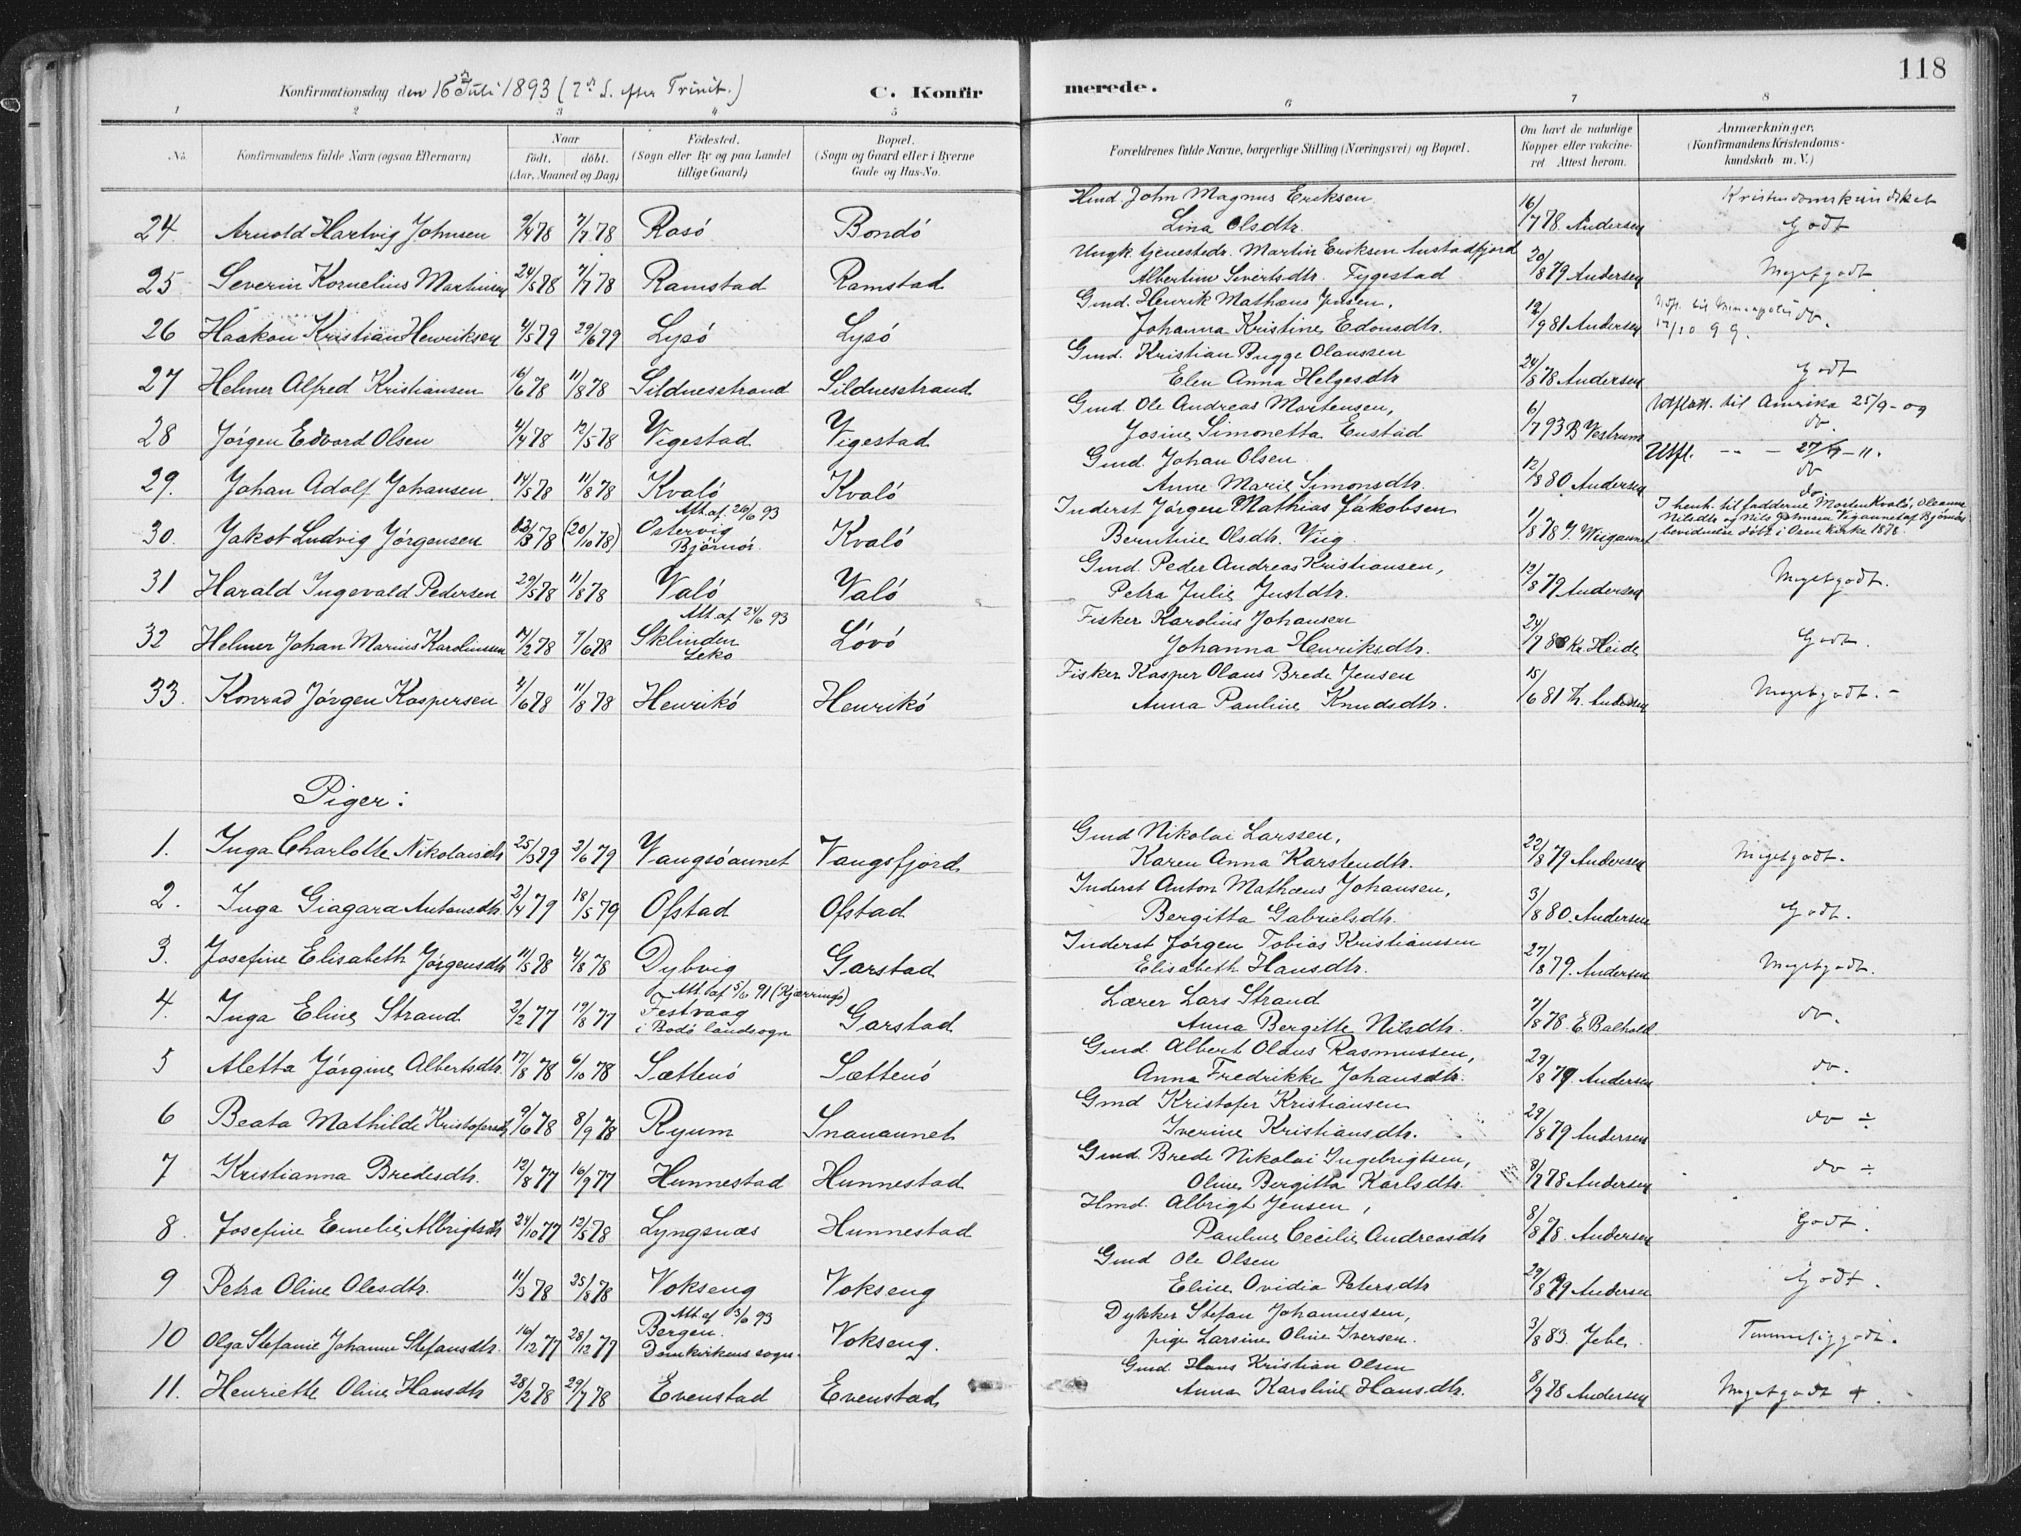 118
Konfirmationsdag den 16de Juli 1893 (7de S. efter Trinit.)
C. Konfir
merede.
1 2 3 4 5 6 7 8
No. Konfirmandens fulde Navn (ogsaa Efternavn) Naar født. døbt. (Aar, Maaned og Dag) Födested. (Sogn eller By og paa Landet tillige Gaard) Bopæl. (Sogn og Gaard eller i Byerne Gade og Hus-No. Forældrenes fulde Navne, borgerlige Stilling (Næringsvei) og Bopæl. Om havt de naturlige Kopper eller vaccineret Attest herom. Anmærkninger. (Konfirmandens Kristendomskundskab m. V.)
Hmd. John Magnus Eriksen Kristendomskundskab
24. Arnold Hartvig Johnsen 9/4 78 7/7 78 Rosö Bondö Lina Olsdtr. 16/7 78 Andersen Godt
Ungk. tjenestedr. Martin Eriksen Austadfjord
25. Severin Kornelius Martinsen 24/5 78 7/7 78 Ramstad Ramstad Albertine Sivertsdtr. Figgestad 20/8 79 Andersen Megetgodt
Gmd. Henrik Mathæus Jensen,
26 Haakon Kristian Henriksen 4/5 79 29/6 79 Lysö Lysö Johanna Kristine Edonsdtr. 12/9 81 Andersen do. 12/10 99.
Gmd. Kristian Bugge Olaussen
27 Helmer Alfred Kristiansen 16/6 78 11/8 78 Sildnesstrand Sildnesstrand Elen Anna Helgesdtr 24/8 78 Andersen Godt
Gmd. Ole Andreas Mortensen, Utflytt. til Amrika 25/9-09
28 Jörgen Edvard Olsen 4/4 78 12/5 78 Vigestad Vigestad Josine Simonetta Enstad 6/7 93 B Vestrum do.
Gmd. Johan Olsen Utfl. -- - 27/9-11.
29. Johan Adolf Johansen. 14/5 78 11/8 78 Kvalö Kvalö Anne Marie Simonsdtr. 12/8 80 Andersen do
Att. af. 26/6 93 Inderst Jörgen Mathias Jakobsen do
30. Jakob Ludvig Jörgensen 13/3 78 (20/10 78) Ostervig Björnör. Kvalö Berntine Olsdtr. Viig 1/8 78 J. Wiigannet I henh. til fadderne Morten Kvalö, Oleanna Nilsdtr og Nils Johnsen Vigannet af Björnör bevidnelse döbt i Osen kirke 1878.
Gmd. Peder Andreas Kristiansen,
31 Harald Ingevald Pedersen 29/5 78 11/8 78 Valö Valö Petra Julie Justdtr. 12/8 79 Andersen Megetgodt.
Att af 24/6 93 Fisker Karolius Johansen
32 Helmer Johan Marius Karoliussen 14/2 78 9/6 78 Sklinden Leko Lövö Johanna Henriksdtr. 24/7 80 Kr. Heide Godt.
Fisker Kasper Olaus Brede Jensen
33. Konrad Jörgen Kaspersen 4/6 78 11/8 78 Henrikö Henrikö Anna Pauline Knudsdtr. 15/6 81 Th. Andersen Megetgodt. -
Piger:
Gmd Nikolai Larssen,
1. Inga Charlotte Nikolaisdtr 25/3 79 2/6 79 Vangsöannet Vangsfjord Karen Anna Karstendtr. 22/8 79 Andersen Megetgodt.
Inderst Anton Mathæus Johansen,
2. Inga Giagara Antonsdtr. 2/4 79 18/5 79 Ofstad Ofstad Bergitta Gabrielsdtr. 3/8 80. Andersen Godt.
Inderst Jörgen Tobias Kristianssen
3. Josefine Elisabeth Jörgensdtr 11/5 78 4/8 78 Dybvig Garstad Elisabeth Hansdtr. 27/8 79. Andersen Megetgodt.
Att. af 5/6 91 (Kjerringö) Lærer Lars Strand
4. Inga Eline Strand 2/2 77 19/8 77 Festvaag i Bodö landsogn Garstad Anna Bergitte Nilsdtr. 7/8 78 E. Balhold do.
Gmd. Albert Olaus Rasmussen,
5 Aletta Jörgine Albertsdtr. 17/8 78 6/10 78 Sættenö Sættenö Anna Fredrikke Johansdtr. 29/8 79 Andersen do.
Gmd Kristofer Kristiansen
6 Beata Mathilde Kristofersdtr 9/6 78 8/9 78 Ryum Snauannet Iverine Kristiansdtr. 29/8 79 Andersen do ÷
Gmd. Brede Nikolai Ingebrigtsen,
7 Kristianna Bredesdtr. 12/8 77 16/9 77 Hunnestad Hunnestad Oline Bergitta Karlsdtr. 8/9 78 Andersen do ÷
Hmd. Albrigt Jensen,
8. Josefine Emelie Albrigtsdtr 24/10 77 12/5 78 Lyngsnæs Hunnestad Pauline Cecilie Andreasdtr 8/8 78. Andersen Godt.
Gmd Ole Olsen
9 Petra Oline Olesdtr. 11/3 78 25/8 78 Vokseng Vokseng Eline Ovidia Petersdtr 29/8 79 Andersen Godt.
Att af 3/6 93 Dykker Stefan Johannessen,
10 Olga Stefanie Johanne Stefansdtr. 16/12 77 28/12 77 Bergen. Domkirkens sogn. Vokseng. pige Larsine Oline Iversen. 3/8 83. Jebe. Temmeliggodt.
Gmd. Hans Kristian Olsen
11. Henriette Oline Hansdtr 28/2 78 29/7 78 Evenstad Evenstad Anna Karoline Hansdtr. 8/9 78 Andersen Megetgodt +.